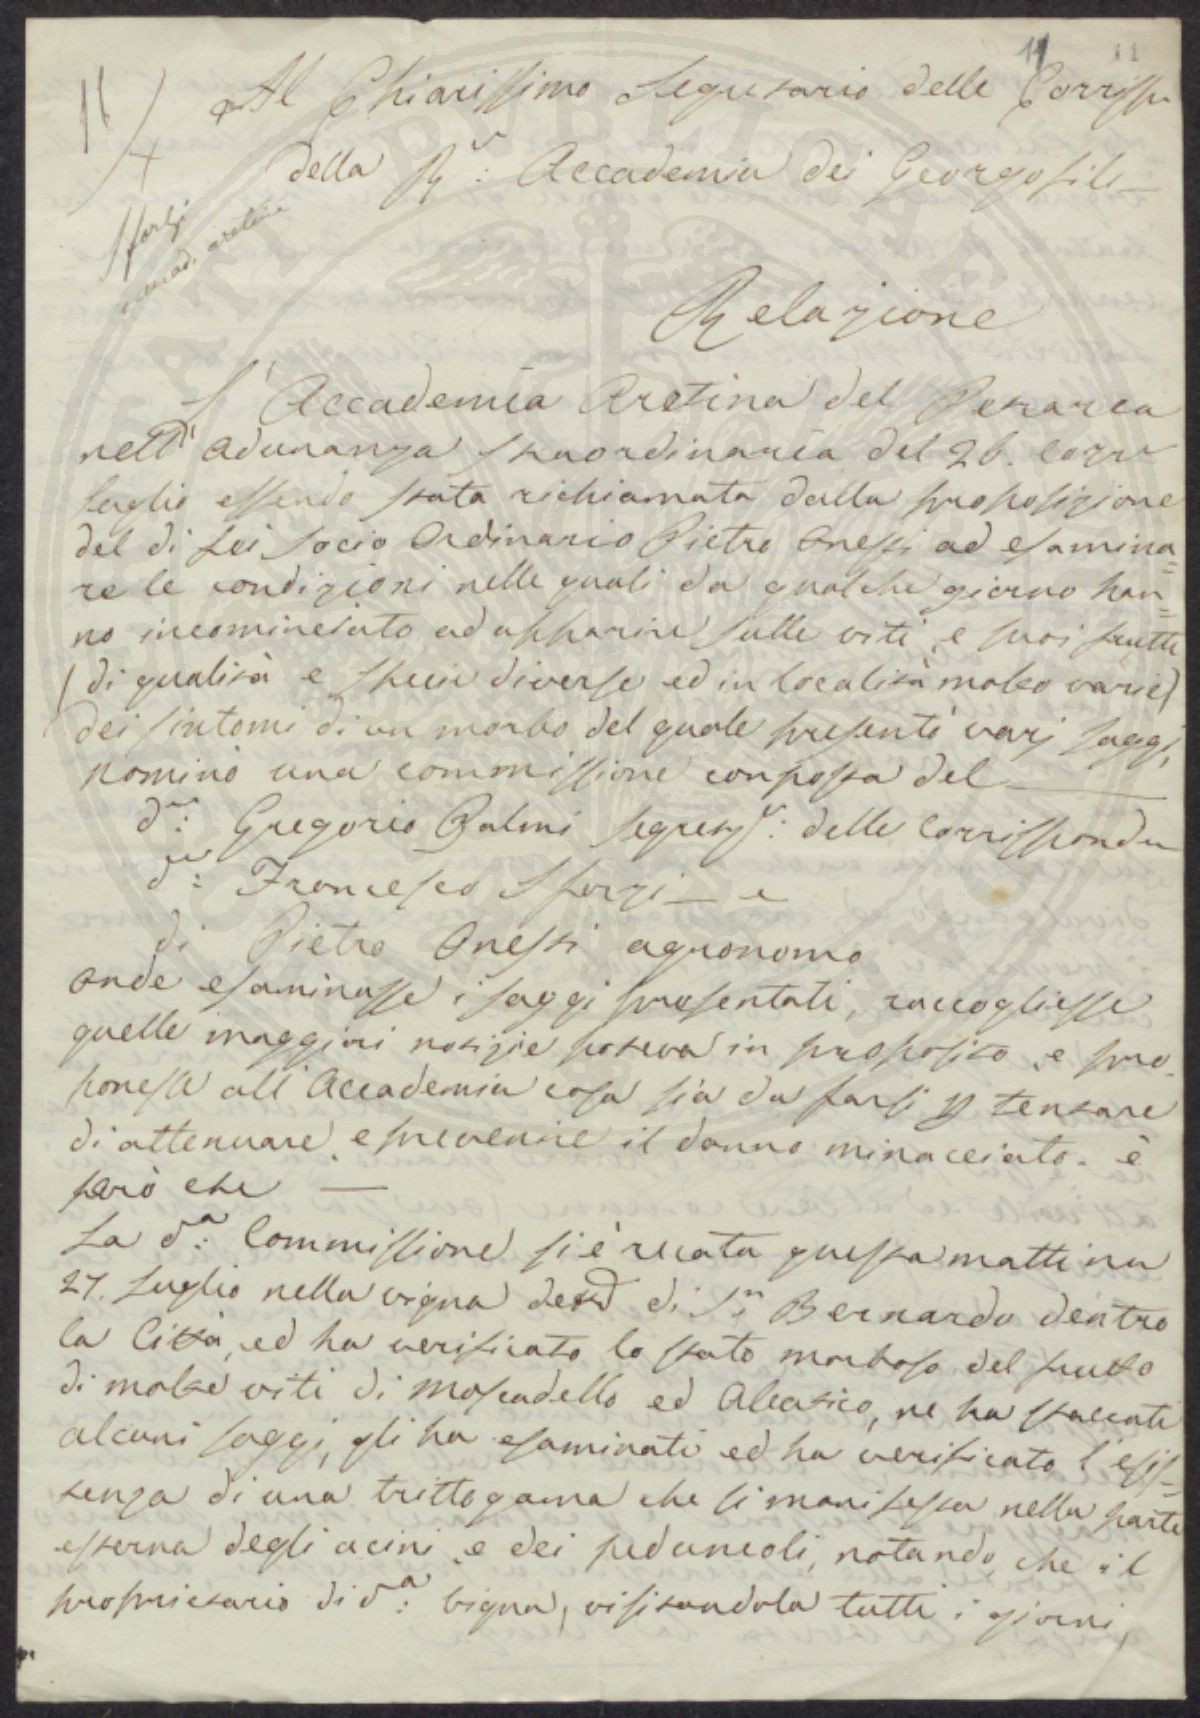 11
11
Al Chiarissimo Segretario delle Corrisp
della R.: Accademia dei Georgofili
Sforzi
accad. aretina
Relazione
L'Accademia Aretina del Petrarca
nell'adunanza straordinaria del 26. Corr
luglio essendo stata richiamata dalla proposizione
del di Lei Socio Ordinario Pietro Onesti ad esamina=
re le condizioni nelle quali da qualche giorno han=
no incominciato ad apparire sulle viti, e suoi frutti
(di qualità e specie diverse ed in località molto varie)
dei sintomi di un morbo del quale presentò varj saggi,
nominò una commissione composta del
dr: Gregorio Palmi Segretº: delle Corrisponden
dr: Francesco Sforzi — e
di Pietro Onesti agronomo
onde esaminasse i saggi presentati, raccogliesse
quelle maggiori notizie poteva in proposito, e pro-
ponesse all'Accademia cosa sia da farsi p tentare
di attenuare, e prevenire il danno minacciato. è
però che —
La da: Commissione si è recata questa mattina
27. Luglio nella vigna di Sn Bernardo dentro
la Città, ed ha verificato lo stato morboso del frutto
di molte viti di Moscadello ed Aleatico, ne ha staccati
alcuni saggi, gli ha esaminati ed ha verificato l'esis=
tenza di una trittogama che si manifesta nella parte
esterna degli acini, e dei peduncoli, notando, che il
proprietario di da: vigna, visitandola tutti i giorni,